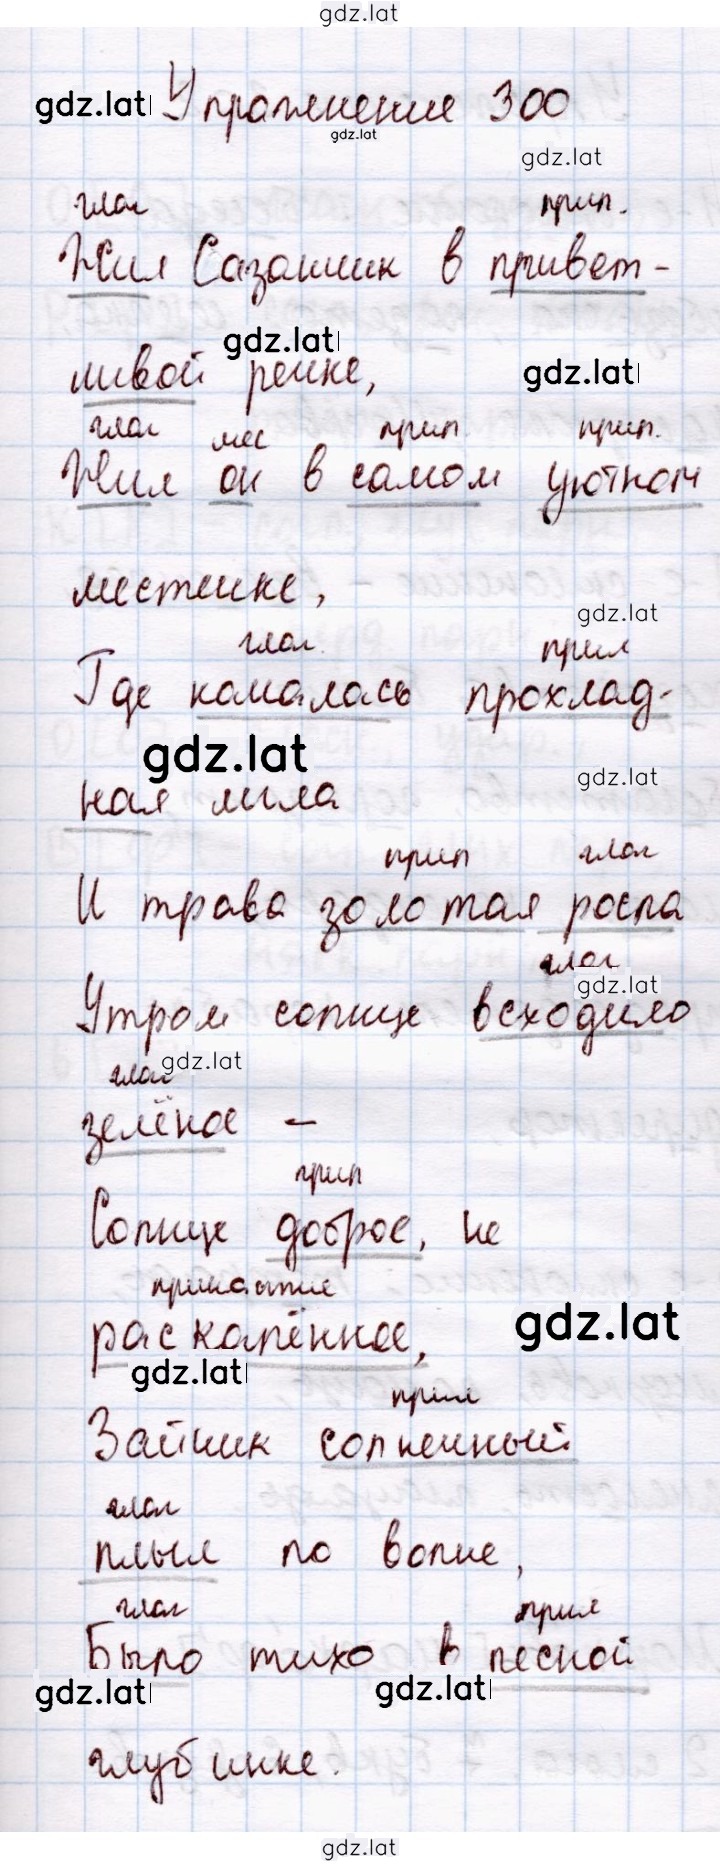 gdz.lat
Упражнение 300
gdz.lat
gdz.lat
gdz.lat
глаг прил.
Жил Сазанчик в привет-
gdz.lat
gdz.lat
ливой речке,
глаг мес прил. прил.
Жил он в самом уютном
местечке,
gdz.lat
глаг. прил
Где качалась прохлад-
gdz.lat
gdz.lat
ная мгла
прил глаг
И трава золотая росла
глаг
gdz.lat
Утром солнце всходило
gdz.lat
глаг
зелёное –
прил
Солнце доброе, не
причастие
gdz.lat
раскалённое,
gdz.lat
прил
Зайчик солнечный
глаг
плыл по волне,
глаг прил
Было тихо в лесной
gdz.lat
gdz.lat
глубинке.
gdz.lat